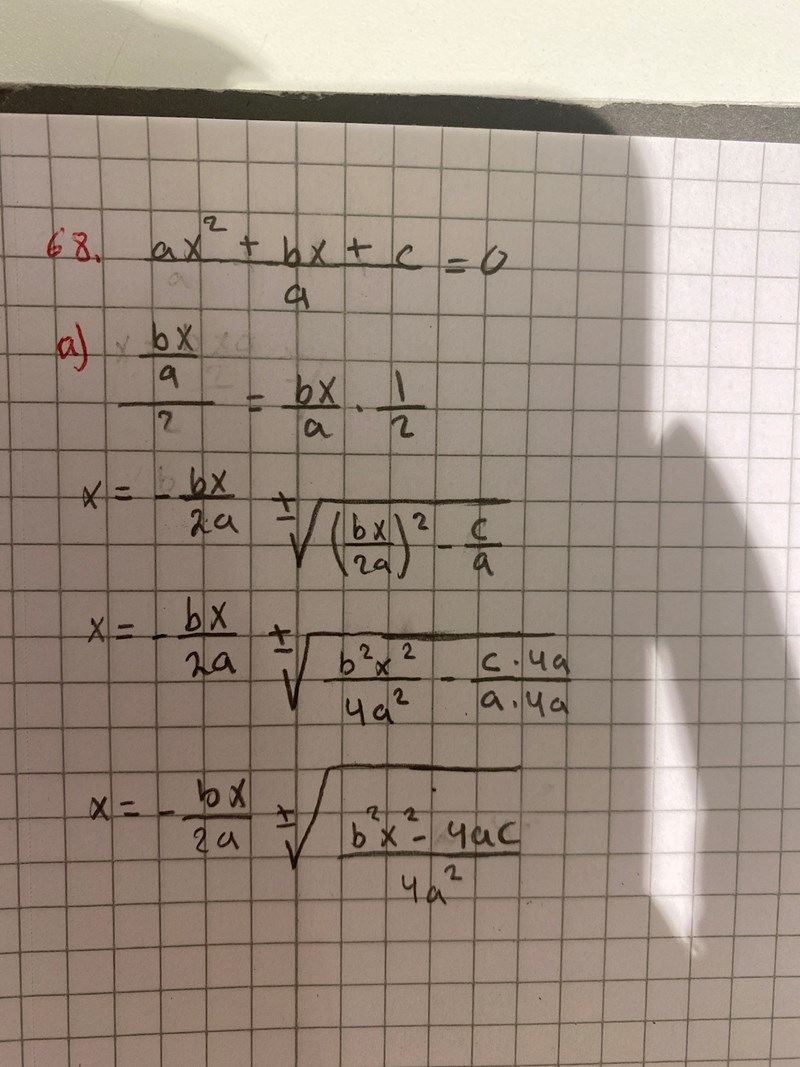 68. (ax² + bx + c)/a = 0
a) (bx/a)/2 = bx/a · 1/2
x = - bx/2a ± √((bx/2a)² - c/a)
x = - bx/2a ± √(b²x²/4a² - c·4a/a·4a)
x = - bx/2a ± √((b²x² - 4ac)/4a²)